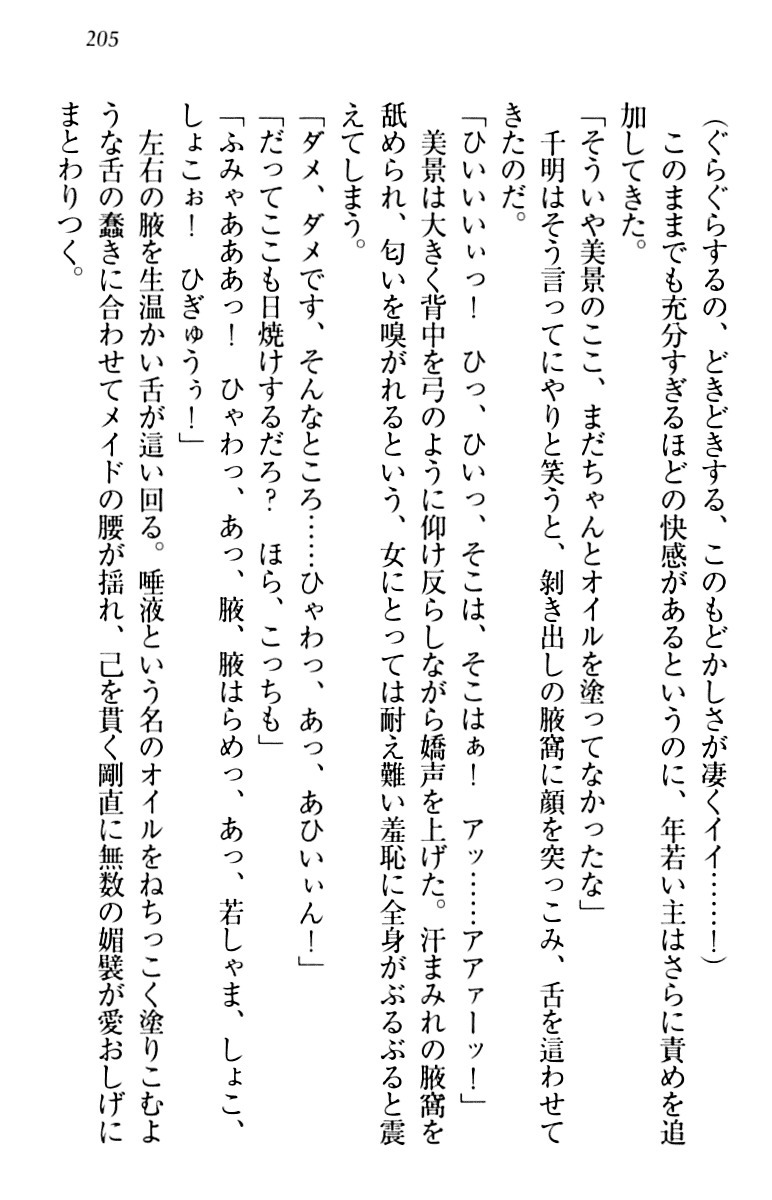 205
(ぐらぐらするの、どきどきする、このもどかしさが凄くイイ……！)
　このままでも充分すぎるほどの快感があるというのに、年若い主はさらに責めを追
加してきた。
「そういや美景のここ、まだちゃんとオイルを塗ってなかったな」
　千明はそう言ってにやりと笑うと、剝き出しの腋窩に顔を突っこみ、舌を這わせて
きたのだ。
「ひいいいぃっ！　ひっ、ひいっ、そこは、そこはぁ！　アッ……アアァーッ！」
　美景は大きく背中を弓のように仰け反らしながら嬌声を上げた。汗まみれの腋窩を
舐められ、匂いを嗅がれるという、女にとっては耐え難い羞恥に全身がぶるぶると震
えてしまう。
「ダメ、ダメです、そんなところ……ひゃわっ、あっ、あひいぃん！」
「だってここも日焼けするだろ？　ほら、こっちも」
「ふみゃあああっ！　ひゃわっ、あっ、腋、腋はらめっ、あっ、若しゃま、しょこ、
しょこぉ！　ひぎゅうぅ！」
　左右の腋を生温かい舌が這い回る。唾液という名のオイルをねちっこく塗りこむよ
うな舌の蠢きに合わせてメイドの腰が揺れ、己を貫く剛直に無数の媚襞が愛おしげに
まとわりつく。